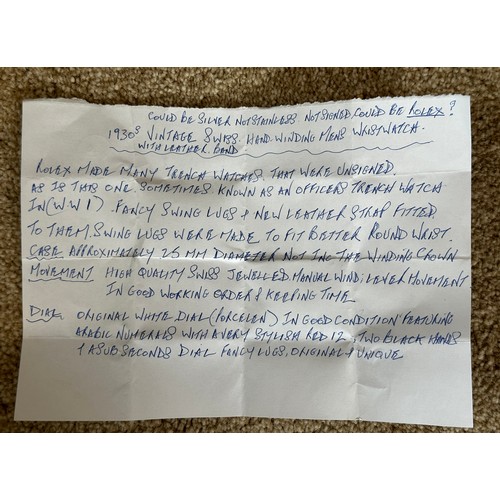 COULD BE SILVER NOT STAINLESS NOT SIGNED COULD BE ROLEX?
1930s VINTAGE SWISS HAND WINDING MENS WRISTWATCH.
WITH LEATHER BAND
ROLEX MADE MANY TRENCH WATCHES THAT WERE UNSIGNED.
AS IS THIS ONE. SOMETIMES KNOWN AS AN OFFICERS TRENCH WATCH
IN (WW1). FANCY SWING LUGS & NEW LEATHER STRAP FITTED
TO THEM. SWING LUGS WERE MADE TO FIT BETTER ROUND WRIST.
CASE APPROXIMATELY 25 MM DIAMETER NOT INC THE WINDING CROWN
MOVEMENT HIGH QUALITY SWISS JEWELLED. MANUAL WIND; LEVER MOVEMENT
IN GOOD WORKING ORDER & KEEPING TIME
DIAL ORIGINAL WHITE DIAL (PORCELEN) IN GOOD CONDITION FEATURING
ARABIC NUMERALS WITH A VERY STYLISH RED 12, TWO BLACK HANDS
& A SUB SECONDS DIAL FANCY LUGS. ORIGINAL & UNIQUE